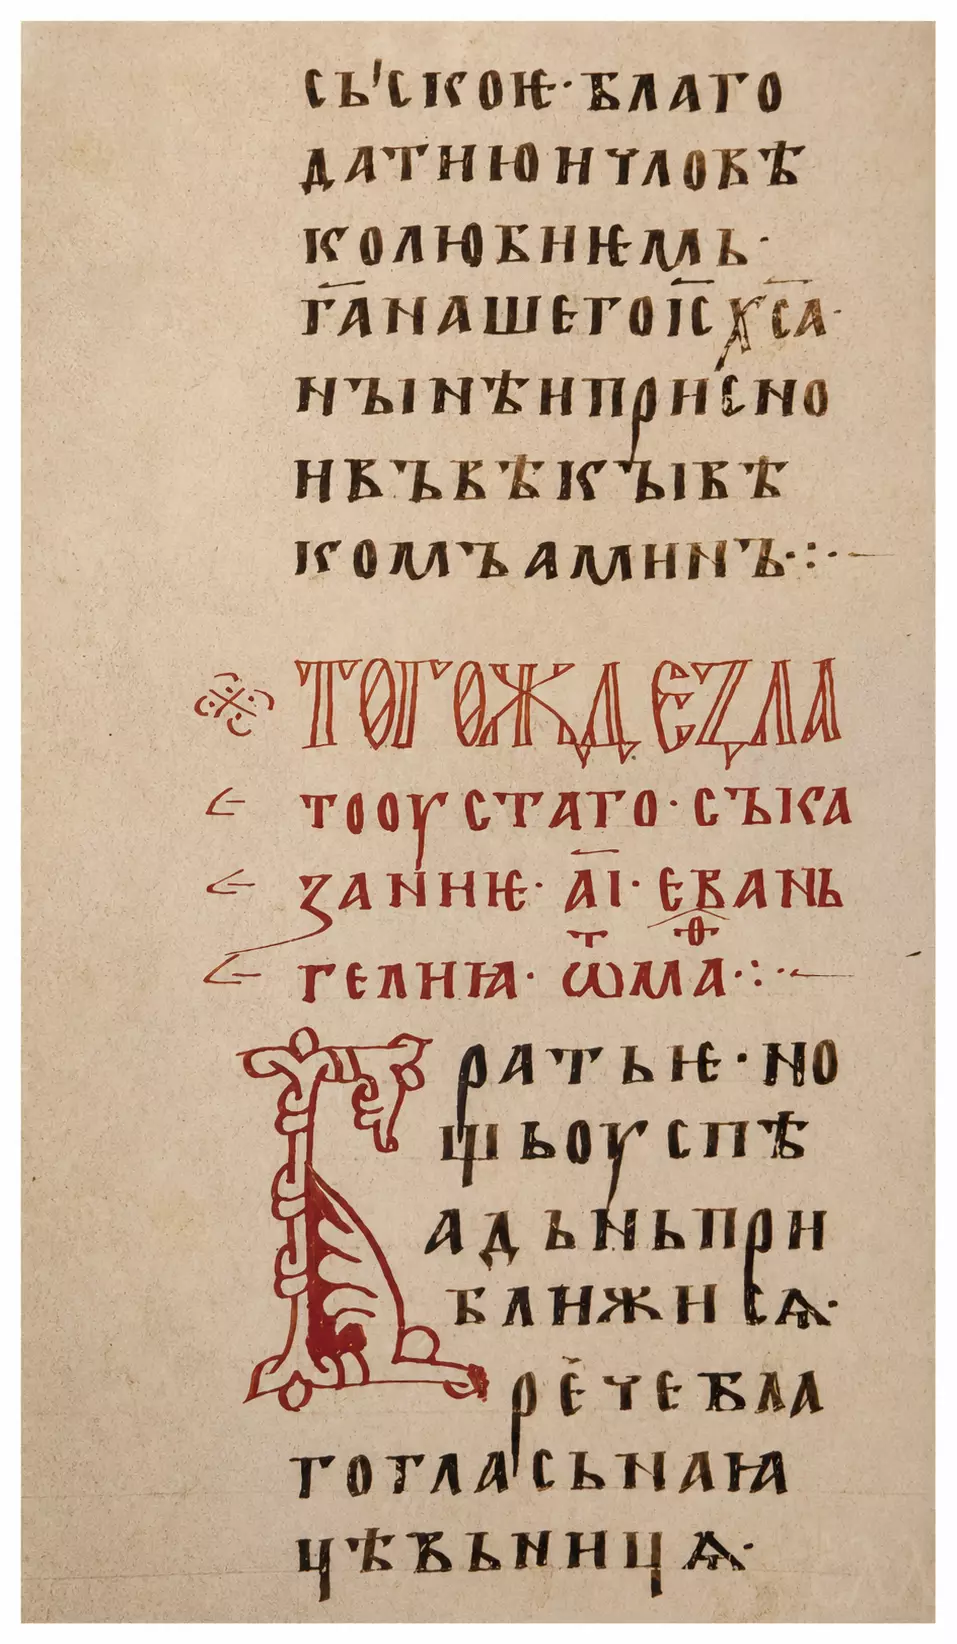 съ'скоѥ· благо
датиюичловѣ
колюбиѥмь·
г҃анашегоі҃сх҃са·
нъінѣиприсно
ивъвѣкъівѣ
комъаминъ·:·
тогождеꙁла
тооустаго·съка
заниѥ· а҃і· євань
гелиꙗ· ѿма·:·
Братьѥ·но
щьоуспѣ
адьньпри
ближисѧ·
речебла
гогласьнаꙗ
цѣвьницѧ·